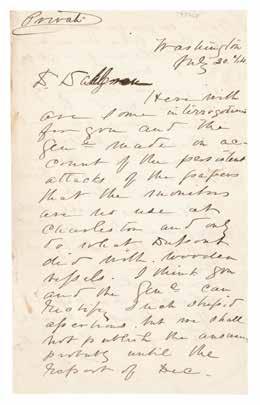 Private
Washington
July 30 '64
D Dahlgren
Here with
are some interrogations
for you and the
Genl made on ac-
count of the persistent
attacks of the papers
that the monitors
are no use at
Charleston and only
to what Dupont
did with wooden
vessels. I think you
and the Genl can
rectify such stupid
assertions. but we shall
not publish the answers
probably until the
report of Dec.